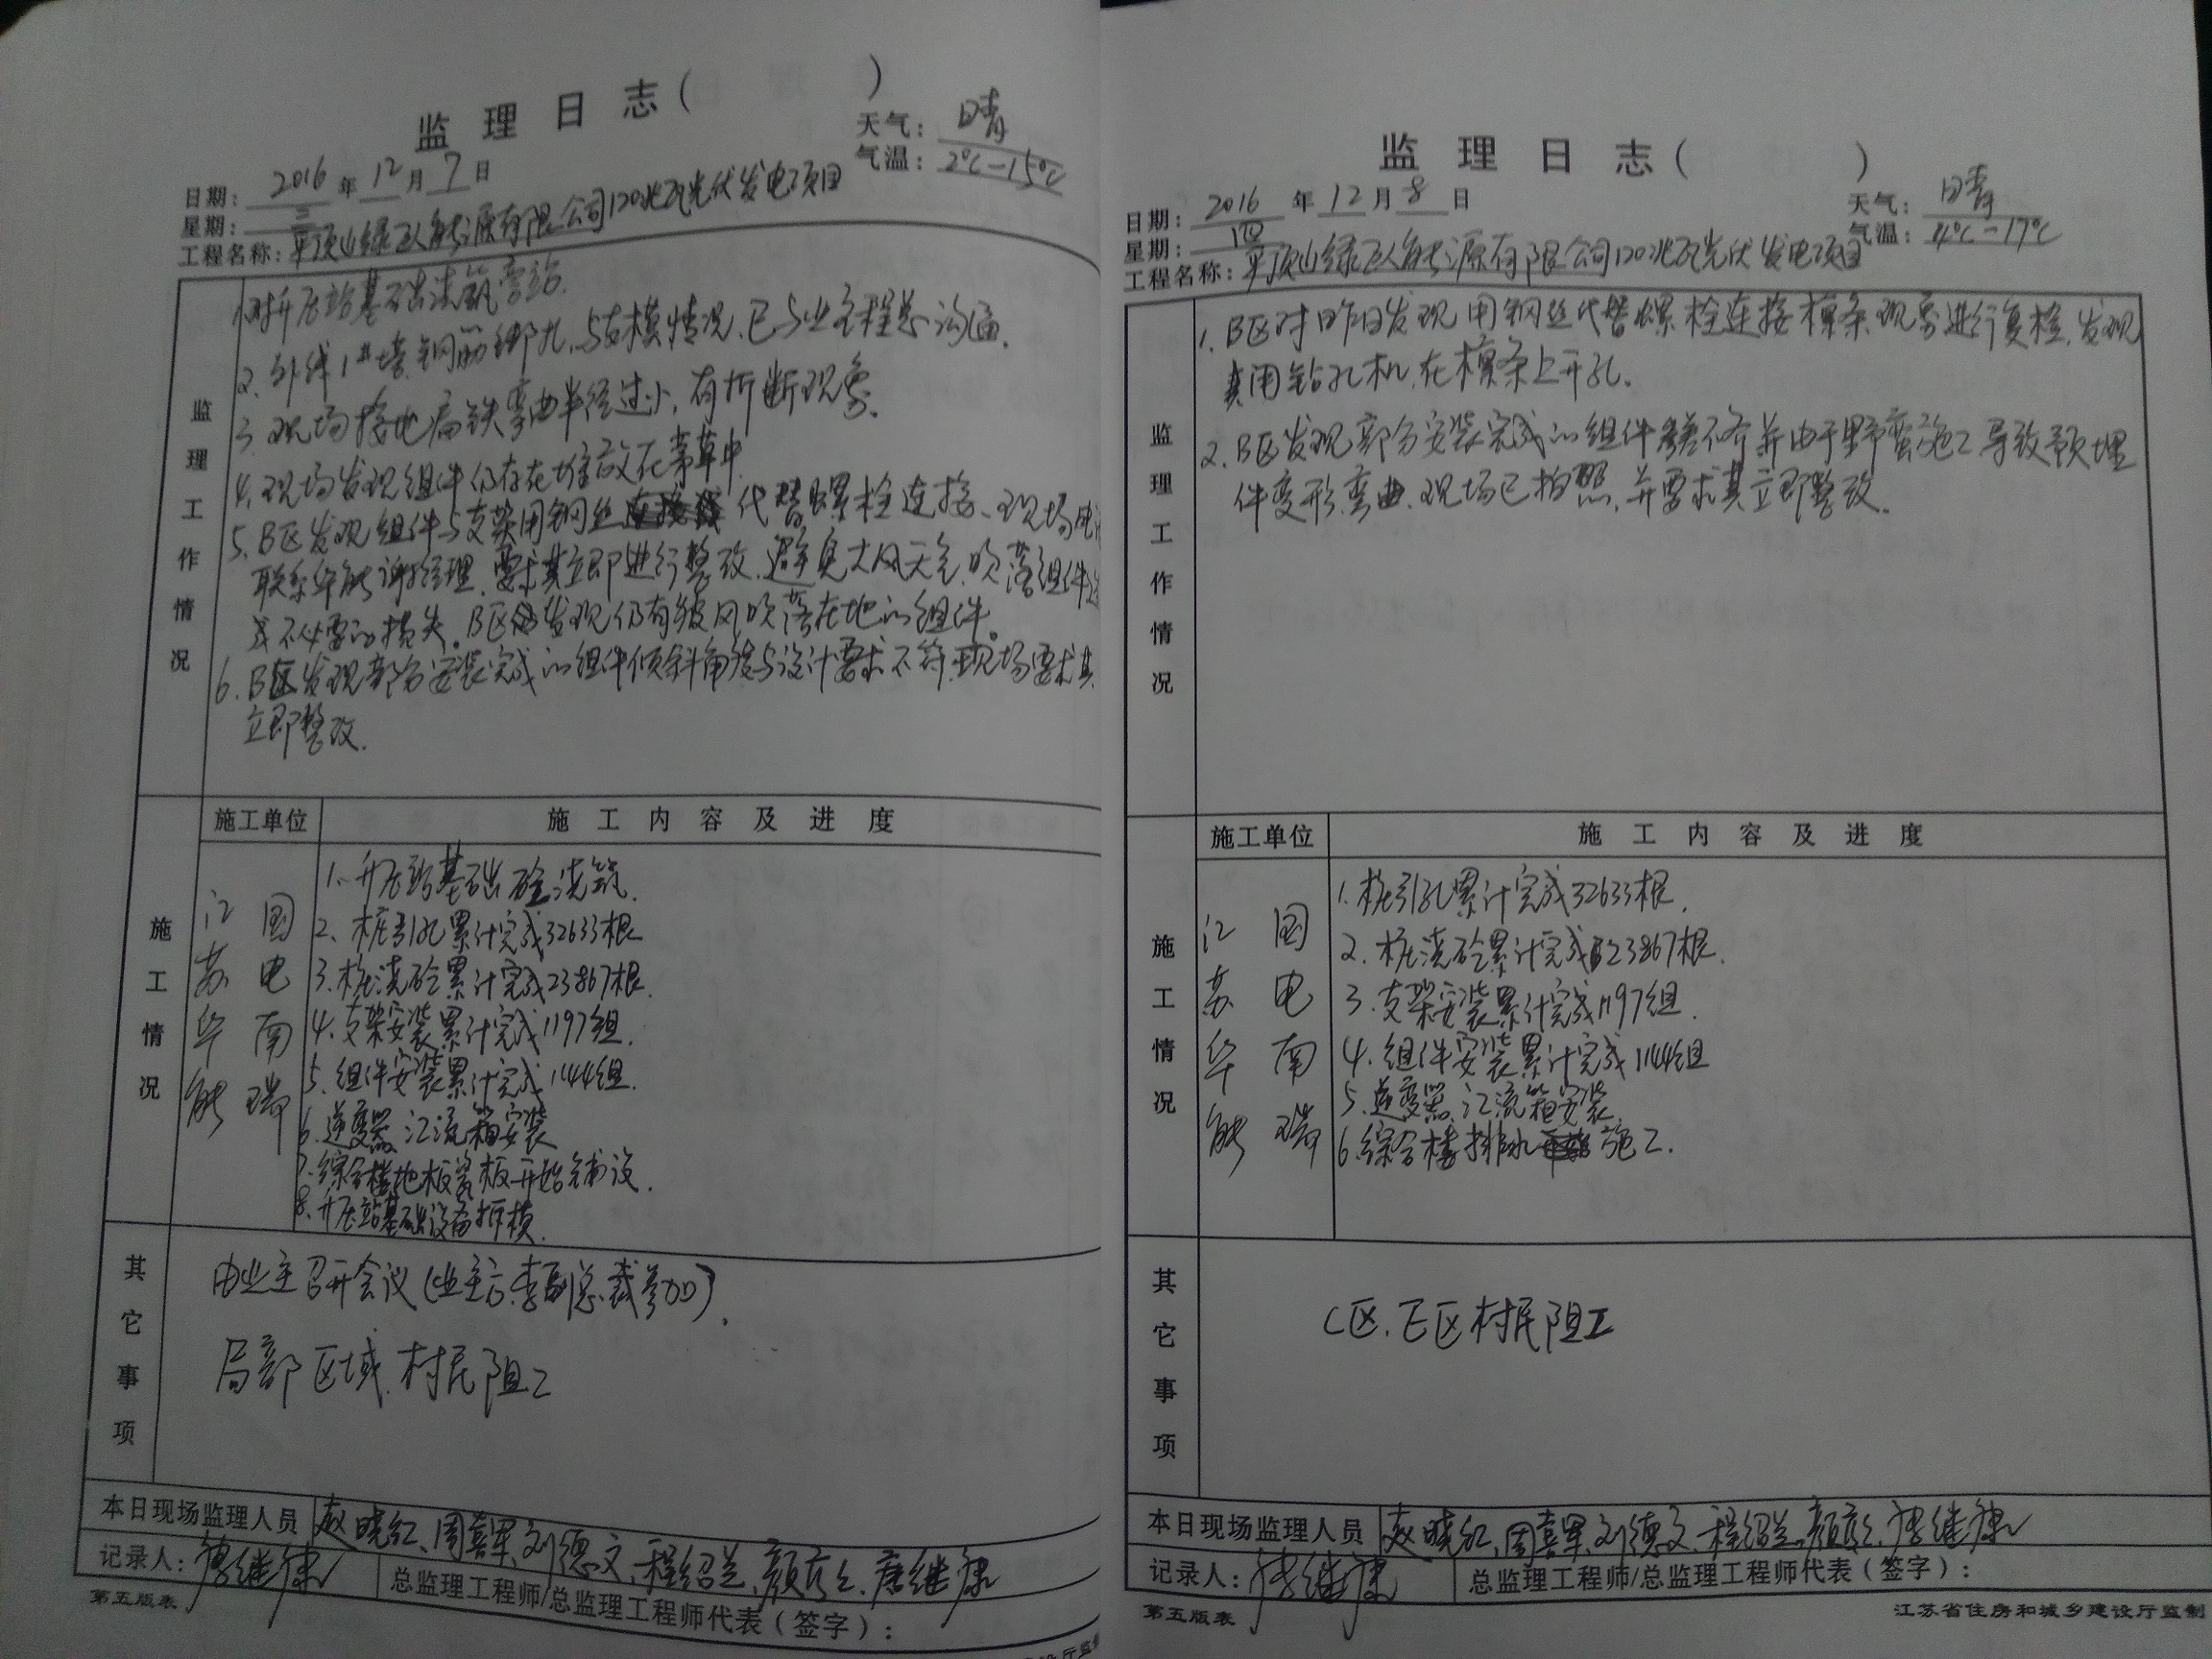 监理日志（ ）
日期：2016年12月7日
天气：晴
星期：三
气温：2℃-15℃
工程名称：平顶山绿巨人能源有限公司120兆瓦光伏发电项目
监理工作情况
1.对升压站基础浇筑旁站.
2.外线1#塔钢筋绑扎、与支模情况、已与业主程总沟通.
3.现场接地扁铁弯曲半径过小，有折断现象.
4.现场发现组件仍存在堆放在草中
5.B区发现组件与支架用钢丝代替螺栓连接、现场电
联系华能谢经理，要求其立即进行整改，避免大风天气，吹落组件造
成不必要的损失。B区发现仍有被风吹落在地的组件。
6.B区发现部分安装完成的组件倾斜角度与设计要求不符，现场要求其
立即整改.
施工情况
施工单位 施工内容及进度
江苏华能
国电南瑞
1、升压站基础砼浇筑.
2、桩引孔累计完成32633根
3.桩浇砼累计完成23867根.
4.支架安装累计完成1197组.
5.组件安装累计完成1144组.
6.逆变器、汇流箱安装
7.综合楼地板瓷板开始铺设.
8.升压站基础设备拆模.
其它事项
由业主召开会议（业主方李副总裁参加）.
局部区域，村民阻工
本日现场监理人员 赵晓红、周喜军、刘德文、程绍兰、颜、唐继康
记录人：唐继康 总监理工程师/总监理工程师代表（签字）：
第五版表
厅监制
监理日志（ ）
日期：2016年12月8日
天气：晴
星期：四
气温：4℃-17℃
工程名称：平顶山绿巨人能源有限公司120兆瓦光伏发电项目
监理工作情况
1.B区对昨日发现用钢丝代替螺栓连接檩条现象进行复检，发现
其用钻孔机，在檩条上开孔.
2.B区发现部分安装完成的组件参差不齐并由于野蛮施工导致预埋
件变形、弯曲、现场已拍照，并要求其立即整改.
施工情况
施工单位 施工内容及进度
江苏华能
国电南瑞
1.桩引孔累计完成32633根.
2.桩浇砼累计完成23867根.
3.支架安装累计完成1197组.
4.组件安装累计完成1144组
5.逆变器、汇流箱安装
6.综合楼排水施工.
其它事项
C区.E区村民阻工
本日现场监理人员 赵晓红、周喜军、刘德文、程绍兰、颜、唐继康
记录人：唐继康 总监理工程师/总监理工程师代表（签字）：
第五版表
江苏省住房和城乡建设厅监制